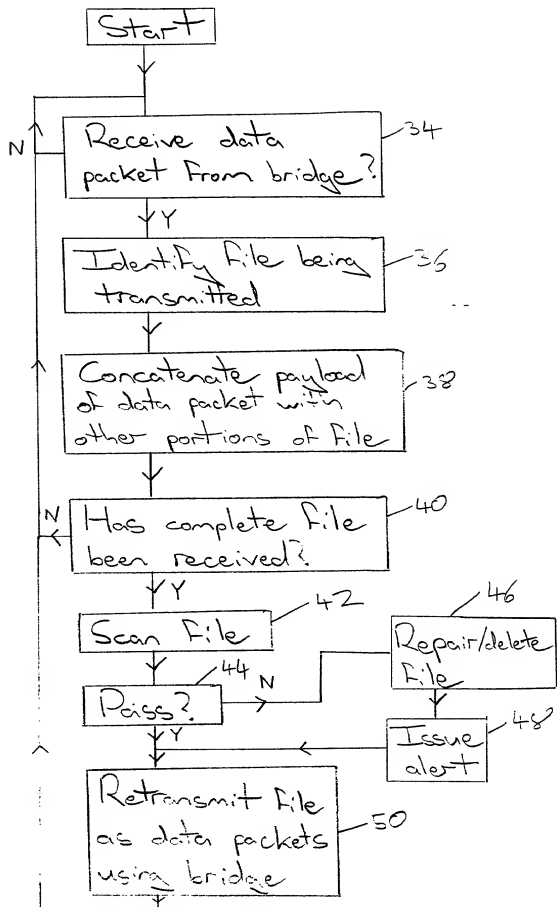 Start
N
Receive data
packet from bridge?
34
Y
Identify file being
transmitted
36
Concatenate payload
of data packet with
other portions of file
38
N
Has complete file
been received?
40
Y
Scan File
42
46
Repair/delete
file
Pass?
44
N
Y
Issue
alert
48
Retransmit file
as data packets
using bridge
50